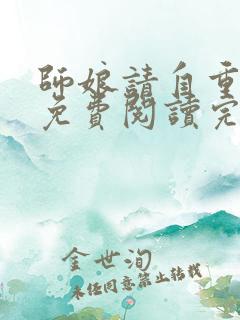 師娘請自重
免費閱讀完
金世洵
未經同意禁止轉載